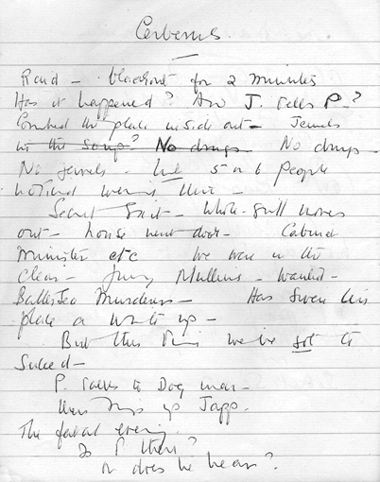 Cerberus.
Raid – blackout for 2 minutes
Has it happened? And J. tells P.?
Combed the place inside out – Jewels
in the soup? No drugs No drugs –
No jewels – 5 or 6 people
noticed weren't there –
Secret Exit – Whole grill moves
out – house next door – Cabinet
Minister etc We were in the
clear – Jimmy Mullins – wanted –
Battersea Murders – Has given his
place a write up –
But this time we've got to
Succeed –
P. talks to Dog man –
then rings up Japp.
The fatal evening
Is P there?
or does he hear?